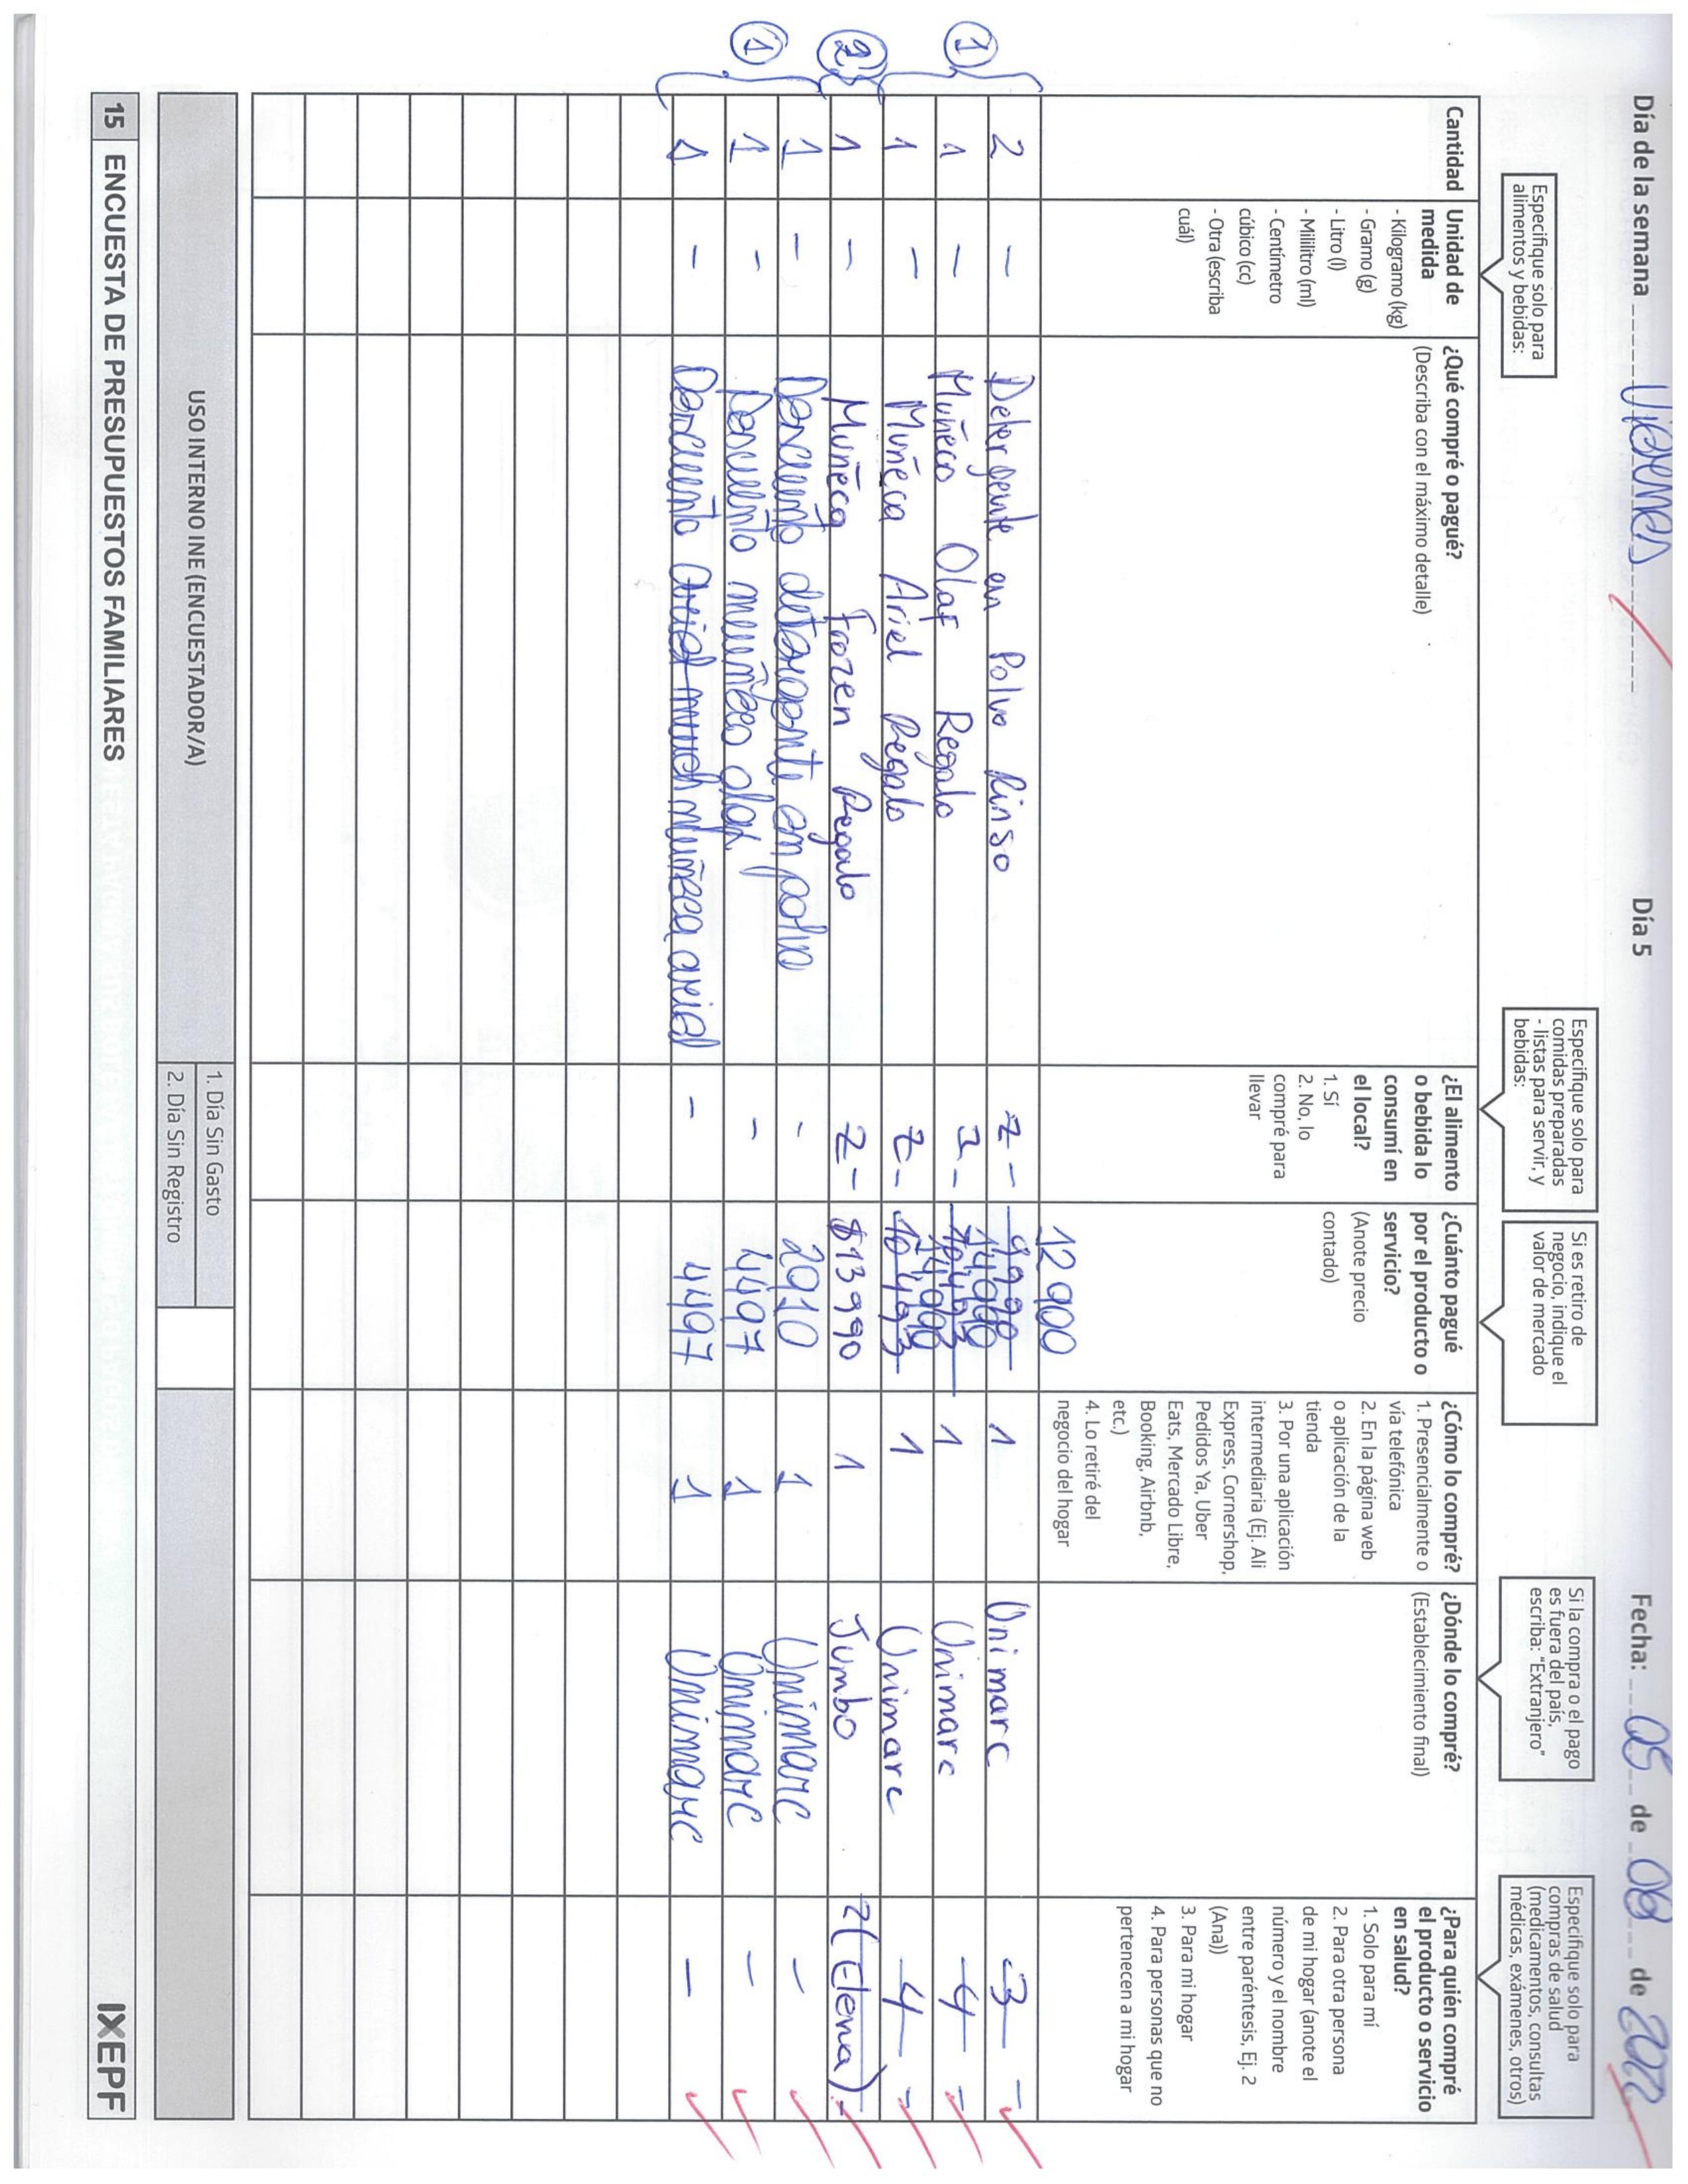 Día de la semana Viernes Día 5 Fecha: 05 de 08 de 2022
Especifique solo para alimentos y bebidas:
Especifique solo para comidas preparadas - listas para servir, y bebidas:
Si es retiro de negocio, indique el valor de mercado
Si la compra o el pago es fuera del país, escriba: "Extranjero"
Especifique solo para compras de salud (medicamentos, consultas médicas, exámenes, otros)
Cantidad
Unidad de medida
- Kilogramo (kg)
- Gramo (g)
- Litro (l)
- Mililitro (ml)
- Centímetro cúbico (cc)
- Otra (escriba cuál)
¿Qué compré o pagué?
(Describa con el máximo detalle)
¿El alimento o bebida lo consumí en el local?
1. Sí
2. No, lo compré para llevar
¿Cuánto pagué por el producto o servicio?
(Anote precio contado)
¿Cómo lo compré?
1. Presencialmente o vía telefónica
2. En la página web o aplicación de la tienda
3. Por una aplicación intermediaria (Ej. Ali Express, Cornershop, Pedidos Ya, Uber Eats, Mercado Libre, Booking, Airbnb, etc.)
4. Lo retiré del negocio del hogar
¿Dónde lo compré?
(Establecimiento final)
¿Para quién compré el producto o servicio en salud?
1. Solo para mí
2. Para otra persona de mi hogar (anote el número y el nombre entre paréntesis, Ej. 2 (Ana))
3. Para mi hogar
4. Para personas que no pertenecen a mi hogar
12 900
2 - Detergente en Polvo Rinso 2 - 9990 1 Unimarc 3 -
14.990
① 1 - Muñeco Olaf Regalo - 10.493 1 Unimarc 4 -
14.990
1 - Muñeca Ariel Regalo 2 - 10 493 1 Unimarc 4 -
② 1 - Muñeca Frozen Regalo 2 - $13990 1 Jumbo 2 (Elena) -
1 - Descuento detergente en polvo - 2910 1 Unimarc -
① 1 - Descuento muñeco olaf - 4497 1 Unimarc -
1 - Descuento Ariel muñeca ariel - 4497 1 Unimarc -
USO INTERNO INE (ENCUESTADOR/A)
1. Día Sin Gasto
2. Día Sin Registro
15 ENCUESTA DE PRESUPUESTOS FAMILIARES IXEPF